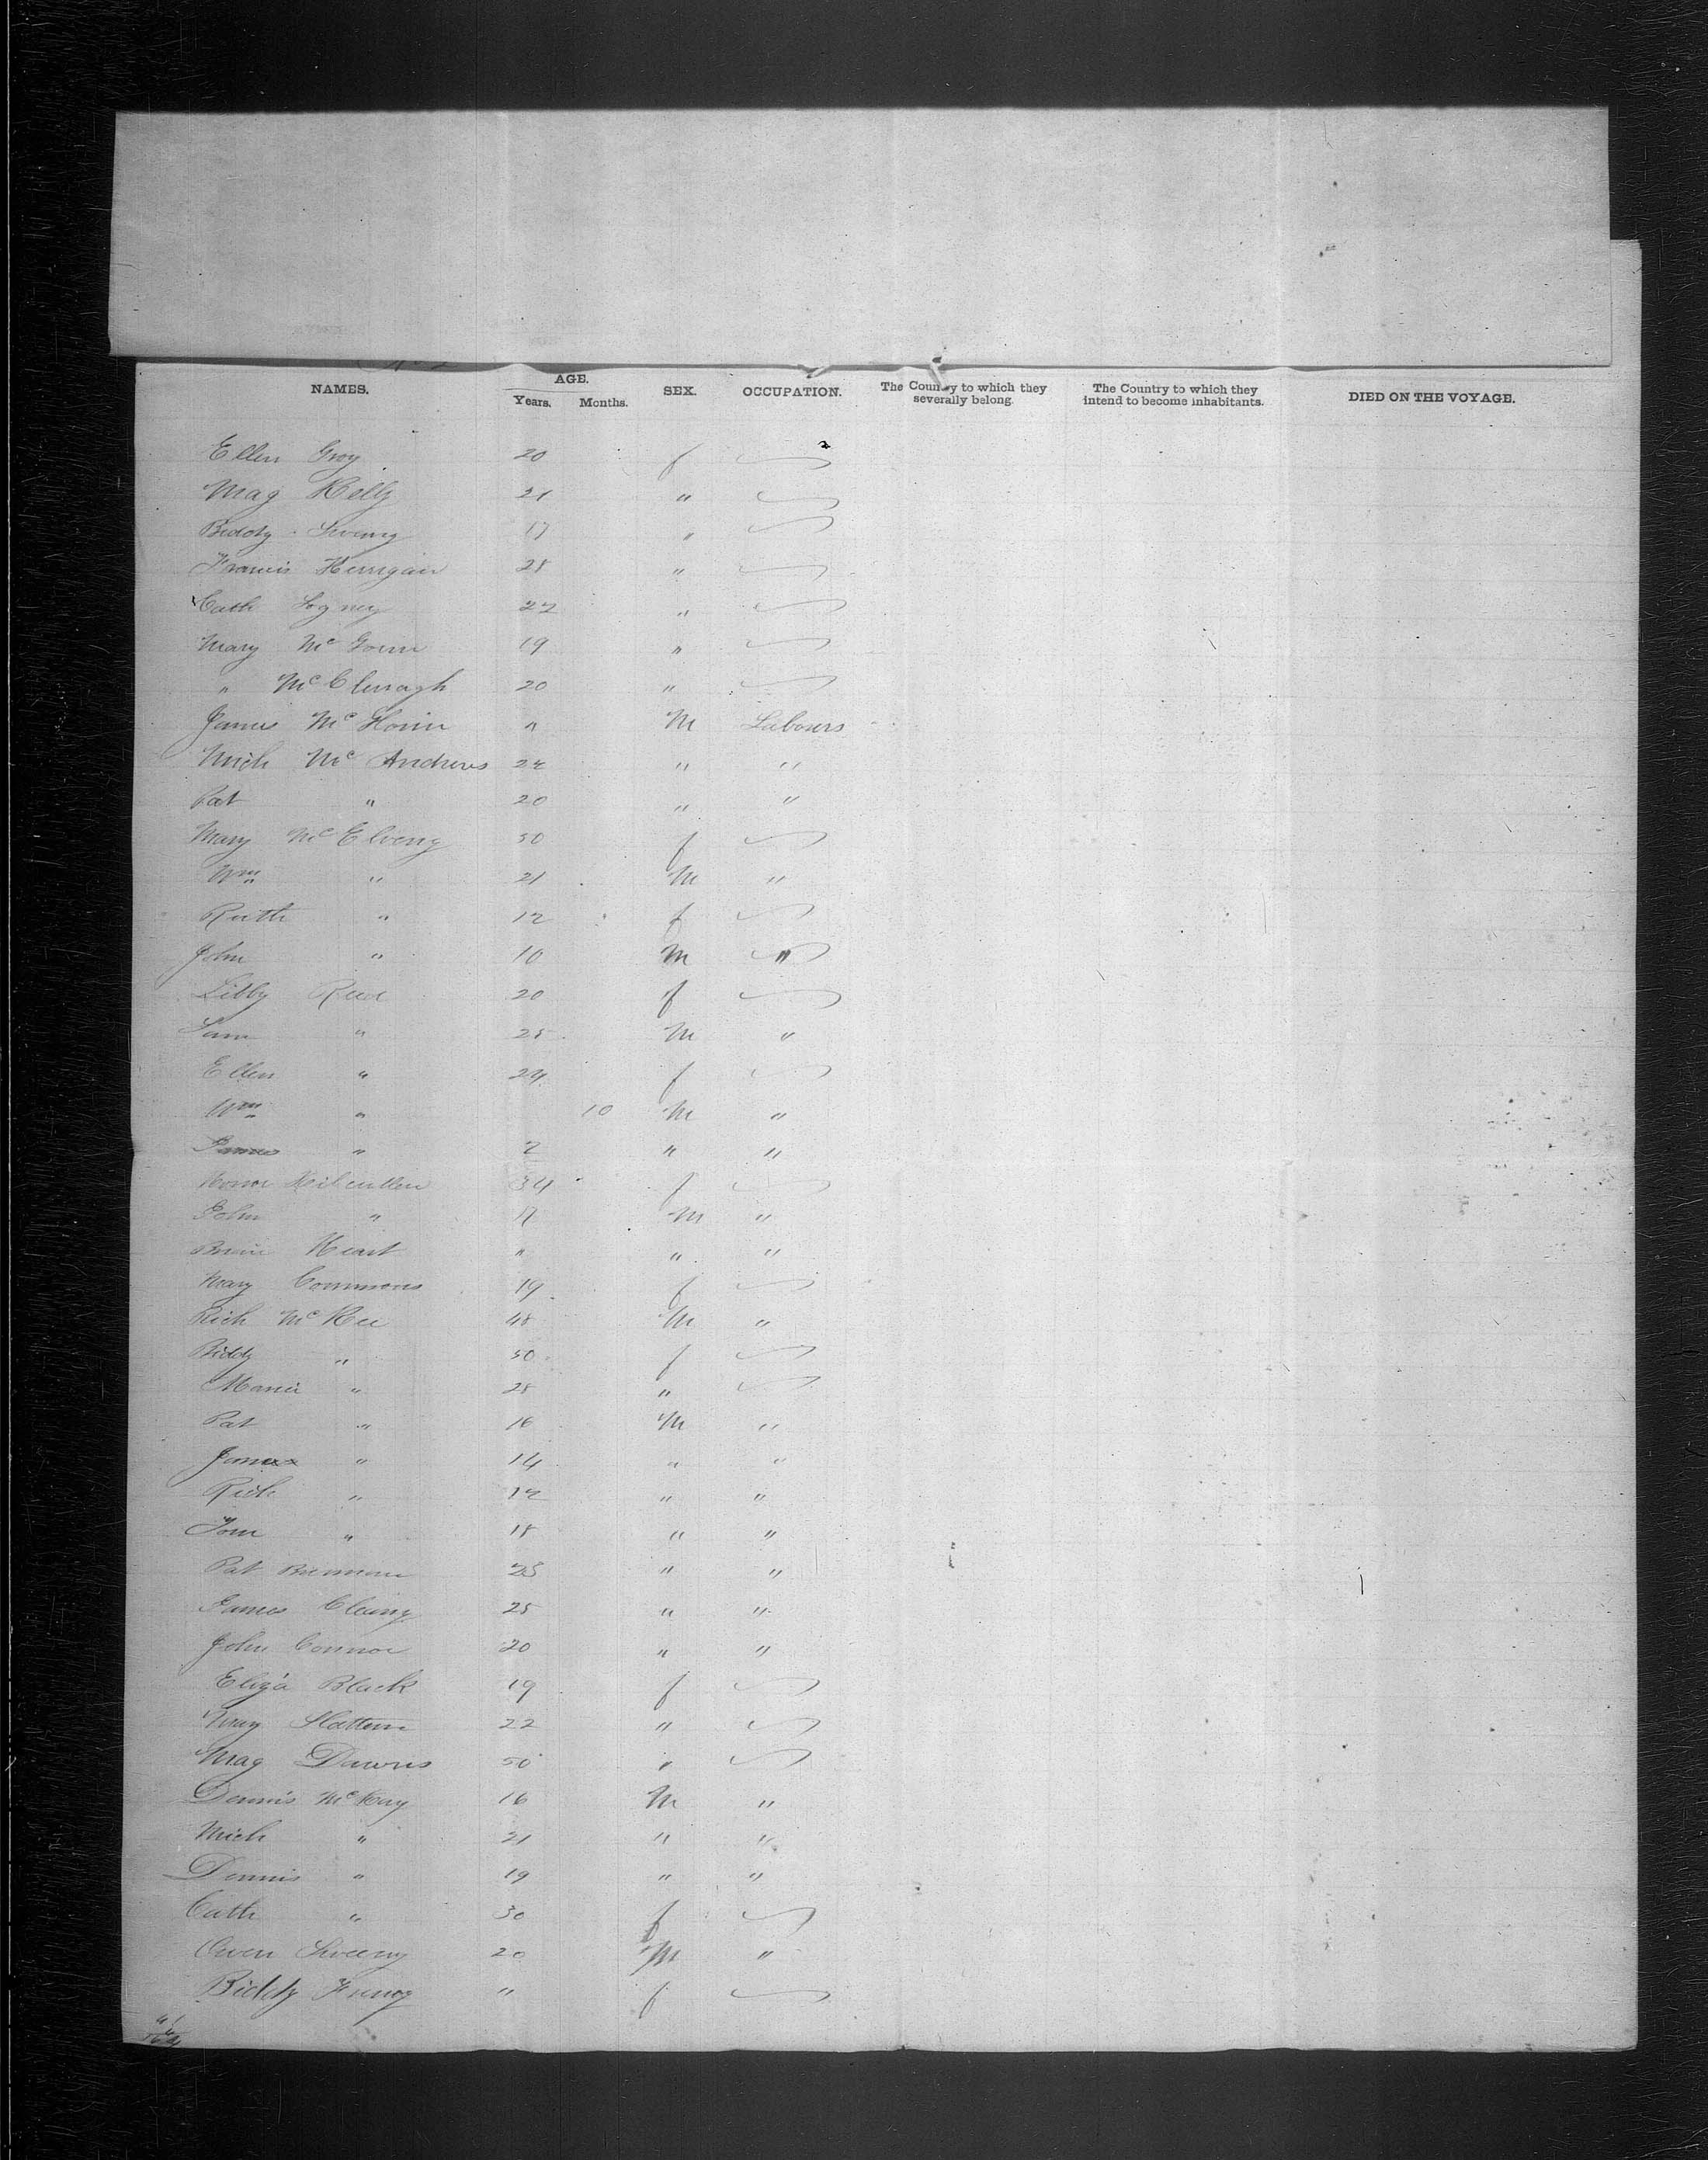 NAMES. AGE. SEX. OCCUPATION. The Country to which they severally belong. The Country to which they intend to become inhabitants. DIED ON THE VOYAGE.
Years. Months.
Ellen Groy 20 f
Mag Kelly 21 "
Biddy 17 "
Francis Kerrigan 28 "
Cath 22 "
Mary Mc 19 "
" McClurragh 20 "
James Mc " M Labours
Mich Mc Andrews 24 " "
Pat " 20 " "
Mary McElveng 50 f
Wm " 21 M "
Ruth " 12 f
John " 10 M "
Libby 20 f
Sam " 25 M "
Ellen " 24 f
Wm " 10 M "
James " 2 " "
Honor Kilcullen 34 f
John " 17 M "
Heart " " "
Mary Commons 19 f
Rich McKee 48 M "
Biddy " 50 f
Maria " 28 "
Pat " 16 M "
James " 14 " "
Rich " 12 " "
Tom " 18 " "
Pat Brennan 25 " "
James 25 " "
John Connor 20 " "
Eliza Black 19 f
Mary Slattern 22 "
Mag Dawns 50 "
Dennis McKay 16 M "
Mich " 21 " "
Dennis " 19 " "
Cath " 30 f
Owen Sweeny 20 M "
Biddy " f